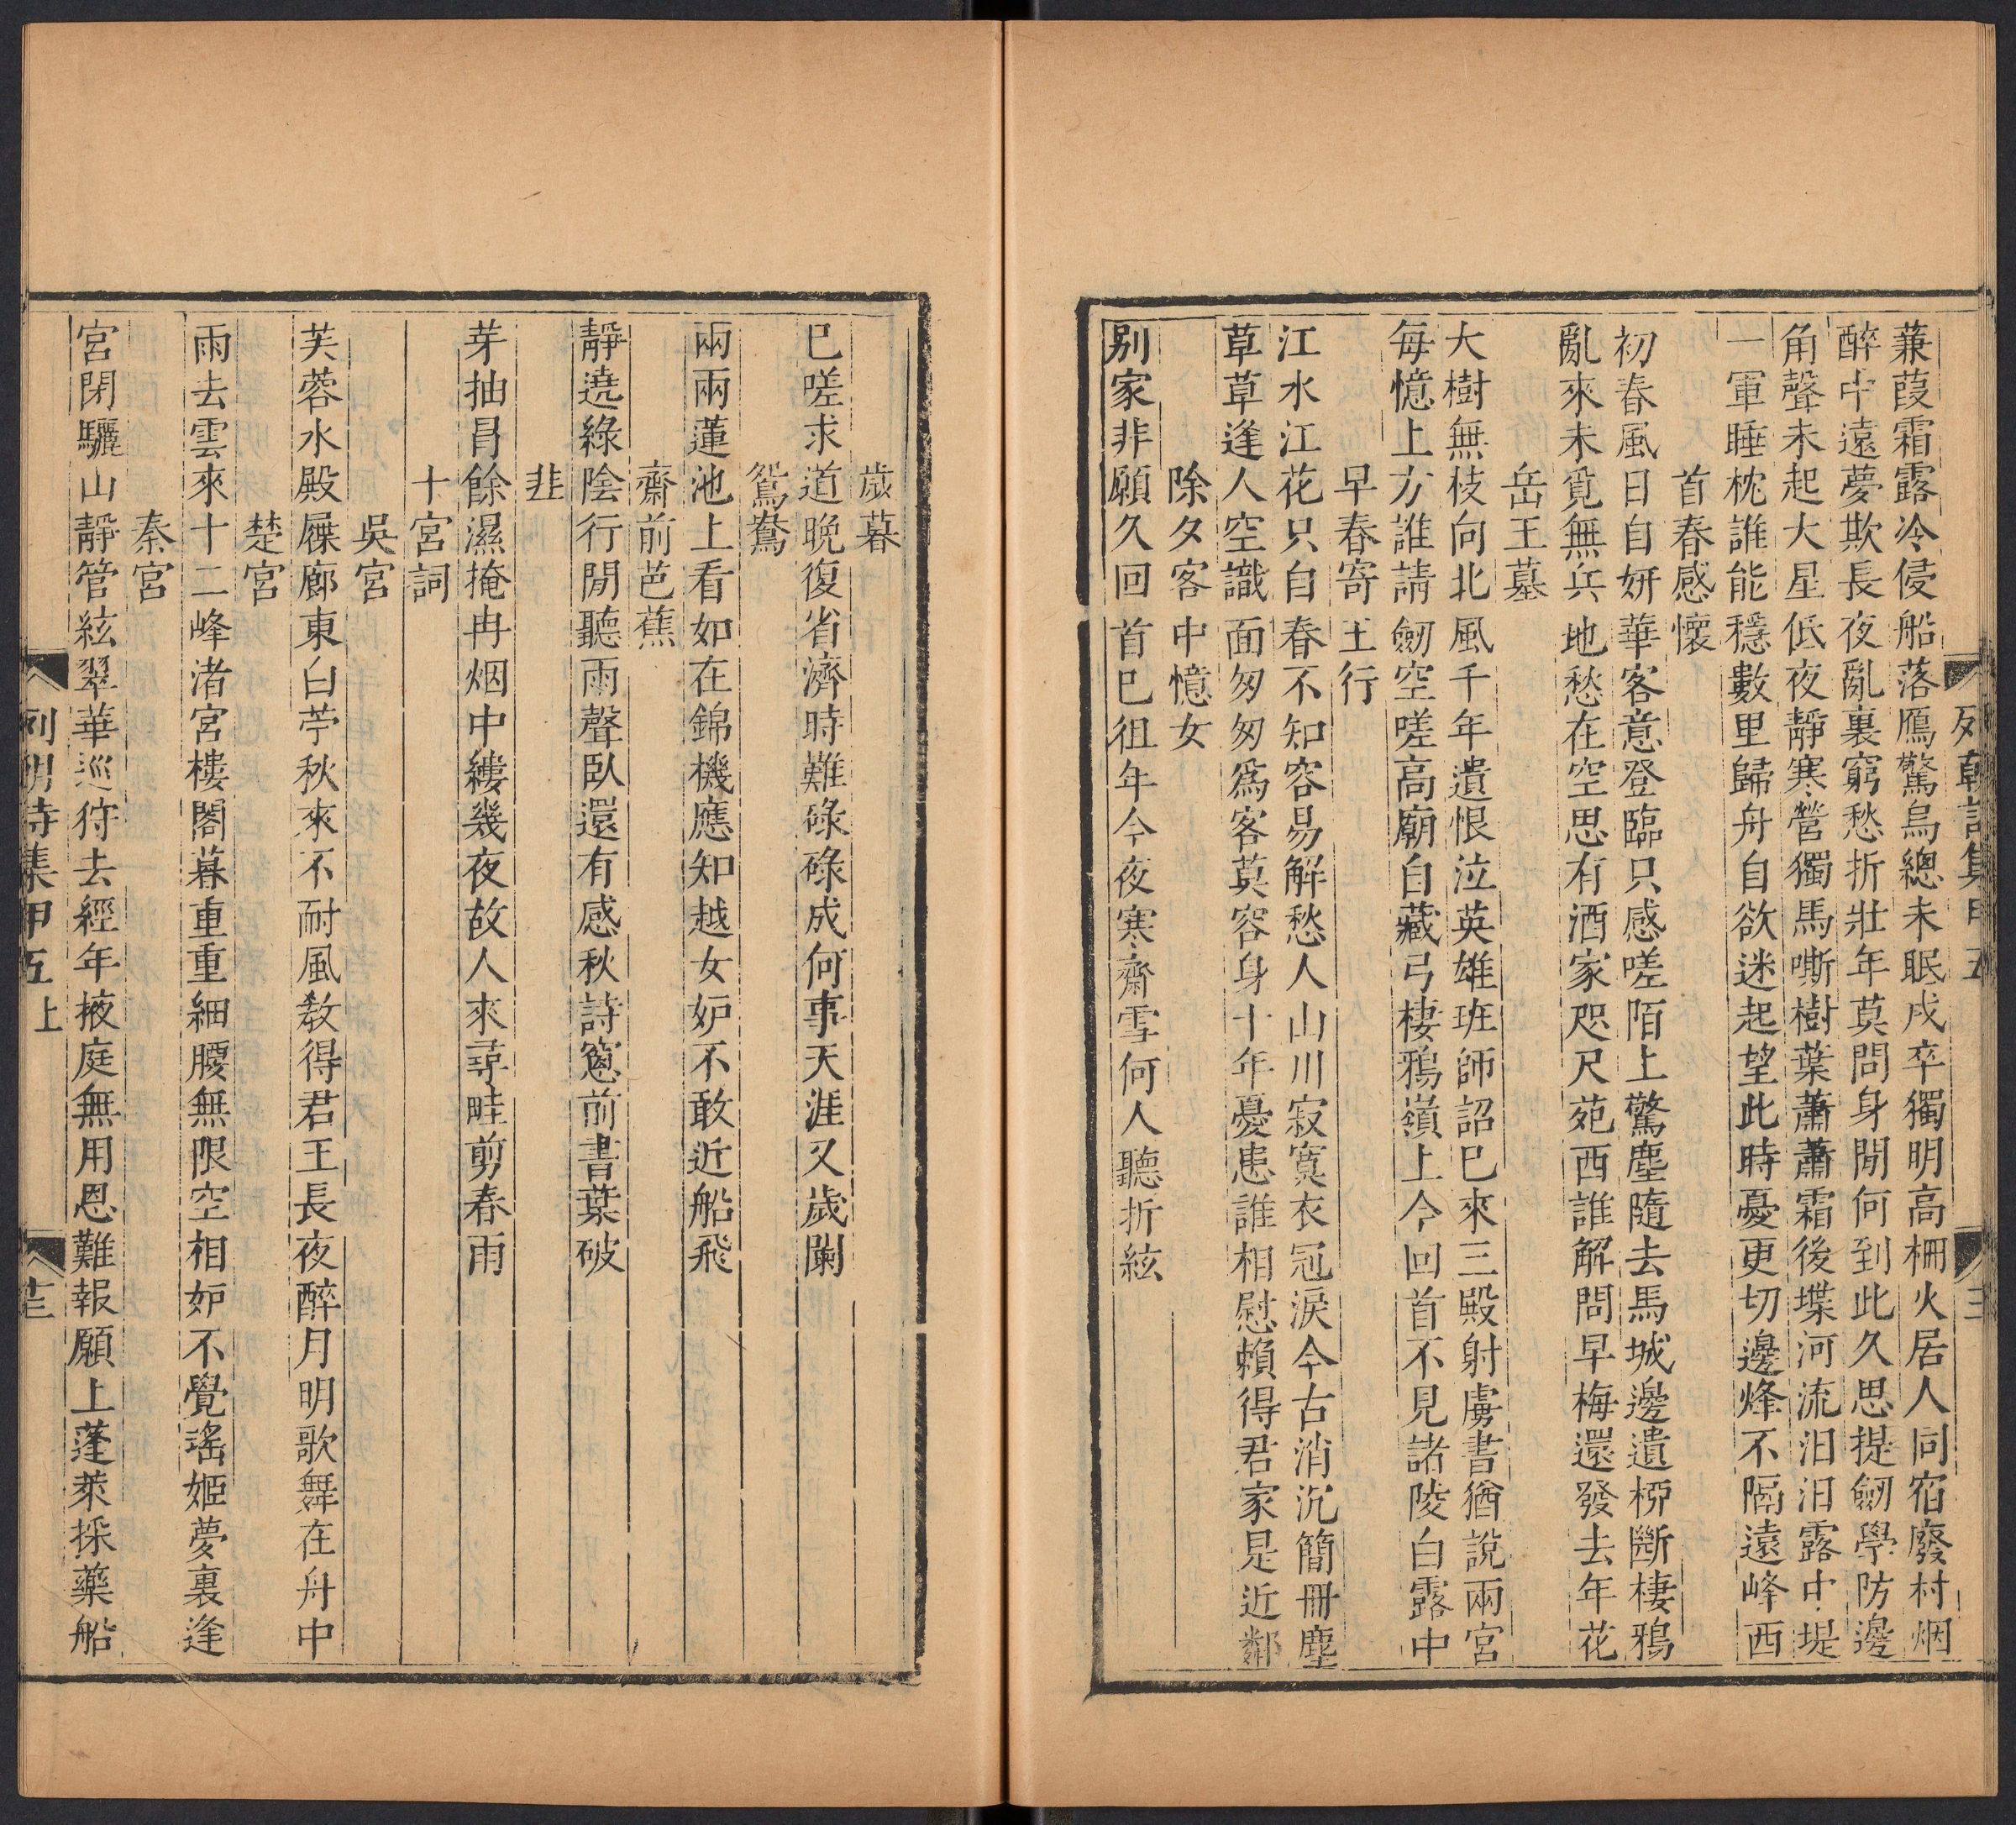 蒹葭霜露冷侵船落鴈驚烏總未眠戍卒獨明高柵火居人同宿廢村烟
醉中遠夢欺長夜亂裏窮愁折壯年莫問身閒何到此久思提劒學防邊
角聲未起大星低夜靜寒營獨馬嘶樹葉蕭蕭霜後堞河流汨汨露中堤
一軍睡枕誰能穩數里歸舟自欲迷起望此時憂更切邊烽不隔遠峰西
首春感懷
初春風日自妍華客意登臨只感嗟陌上驚塵隨去馬城邊遺柳斷棲鴉
亂來未覓無兵地愁在空思有酒家咫尺苑西誰解問早梅還發去年花
岳王墓
大樹無枝向北風千年遺恨泣英雄班師詔已來三殿射虜書猶說兩宮
每憶上方誰請劒空嗟高廟自藏弓棲鴉嶺上今回首不見諸陵白露中
早春寄王行
江水江花只自春不知容易解愁人山川寂寞衣冠淚今古消沉簡冊塵
草草逢人空識面匆匆爲客莫容身十年憂患誰相慰賴得君家是近鄰
除夕客中憶女
別家非願久回首已徂年今夜寒齋雪何人聽折絃
列朝詩集甲五
三
歲暮
已嗟求道晚復省濟時難碌碌成何事天涯又歲闌
鴛鴦
兩兩蓮池上看如在錦機應知越女妒不敢近船飛
齋前芭蕉
靜遶綠陰行閒聽雨聲臥還有感秋詩窻前書葉破
韭
芽抽冐餘濕掩冉烟中縷幾夜故人來尋畦剪春雨
十宮詞
吳宮
芙蓉水殿屧廊東白苧秋來不耐風敎得君王長夜醉月明歌舞在舟中
楚宮
雨去雲來十二峰渚宮樓閣暮重重細腰無限空相妒不覺瑤姬夢裏逢
秦宮
宮閉驪山靜管絃翠華巡狩去經年掖庭無用恩難報願上蓬萊採藥船
列朝詩集甲五上